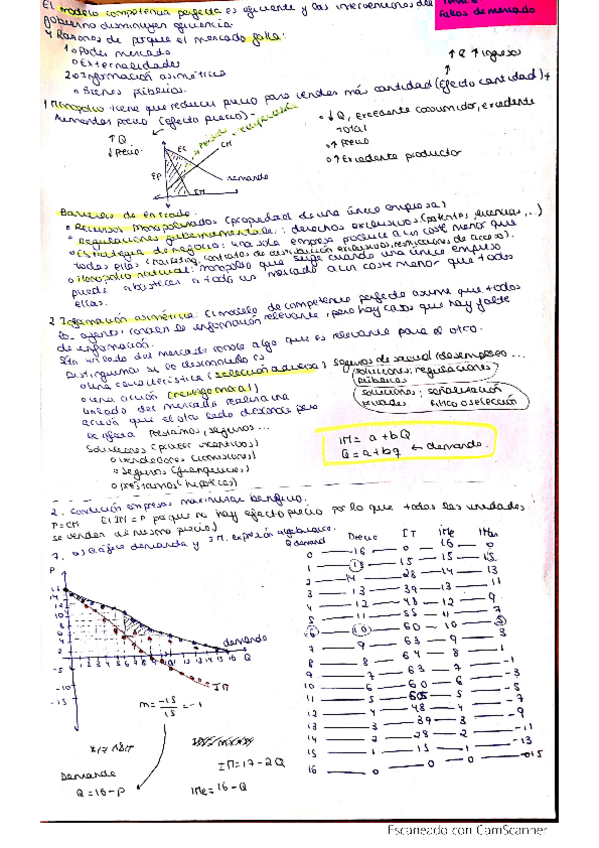 El modelo competencia perfecta es eficiente y las intervenciones del
gobierno disminuyen eficiencia.
Fallos de mercado
4 Razones de porque el mercado falla:
1 o Poder mercado
o Externalidades
2 o Información asimétrica
o Bienes públicos.
↑Q ↑ingresos
1 Monopolio tiene que reducir precio para vender más cantidad (efecto cantidad) +
aumentar precio (efecto precio)-
↑Q
↓Precio
EC
CM
EP
demanda
IM
o ↓Q, excedente consumidor, excedente
total
o ↑Precio
o ↑Excedente productor
Barreras de entrada:
o Recursos Monopolizados (propiedad de una única empresa)
o Regulaciones gubernamentales: derechos exclusivos (patentes, licencias,...)
o Estrategia de negocio: una sola empresa produce a un coste menor que
todas ellas (marketing, contratos de distribución exclusivos, restricciones de acceso).
o Monopolio natural: monopolio que surge cuando una única empresa
puede abastecer a todo un mercado a un coste menor que todas
ellas.
2 Información asimétrica: El modelo de competencia perfecta asume que todos
los agentes conocen la información relevante, pero hay casos que hay falta
de información.
Un lado del mercado conoce algo que es relevante para el otro.
Distinguimos si lo desconocido es
o una característica (selección adversa) seguros de salud/desempleo...
soluciones: regulaciones
públicas
o una acción (riesgo moral)
soluciones: señalización
privadas filtro o selección
un lado del mercado realiza una
acción que el otro lado desconoce pero
le afecta Préstamos, seguros...
Soluciones (crear incentivos)
o vendedores (comisiones)
o Seguros (franquicias)
o (préstamos (hipotecas)
IM = a + bQ
Q = a + bq ← demanda.
2. Condición empresa maximizar beneficio.
P=CM El IM = P porque no hay efecto precio por lo que todas las unidades
se venden al mismo precio)
7. a) Gráfico demanda y IM. expresión algebraica.
Q demand Precio IT IMe IMar
0 — 16 — 0 — 16 — 0
1 — 15 — 15 — 15 — 15
2 — 14 — 28 — 14 — 13
3 — 13 — 39 — 13 — 11
4 — 12 — 48 — 12 — 9
5 — 11 — 55 — 11 — 7
6 — 10 — 60 — 10 — 5
7 — 9 — 63 — 9 — 3
8 — 8 — 64 — 8 — 1
9 — 7 — 63 — 7 — -1
10 — 6 — 60 — 6 — -3
11 — 5 — 5 — -5
12 — 4 — 48 — 4 — -7
13 — 3 — 39 — 3 — -9
14 — 2 — 28 — 2 — -11
15 — 1 — 15 — 1 — -13
16 — 0 — 0 — 0 — -15
P
demanda
1 2 3 4 5 6 7 8 9 10 11 12 13 14 15 16 Q
-5
-10
-15
IM
m = -15/15 = -1
IM=17-2Q
Demanda
Q=16-P
IMe=16-Q
Escaneado con CamScanner